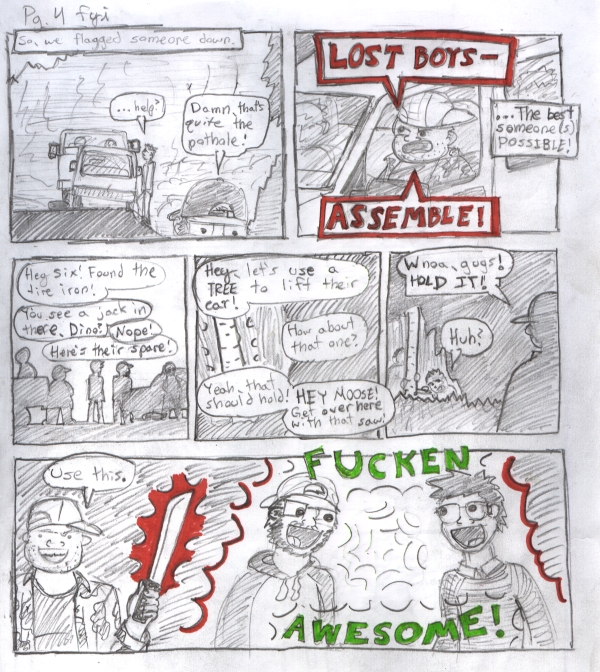 Pg. 4 fyi
So, we flagged someone down.
...help?
Damn, that's
quite the
pothole!
LOST BOYS-
ASSEMBLE!
...The best
someone(s)
POSSIBLE!
Hey Six! Found the
tire iron!
You see a jack in
there, Dino?
Nope!
Here's their spare!
Hey, let's use a
TREE to lift their
car!
How about
that one?
Yeah, that
should hold!
HEY MOOSE!
Get over here
with that saw.
Whoa, guys!
HOLD IT!
Huh?
Use this.
FUCKEN
AWESOME!